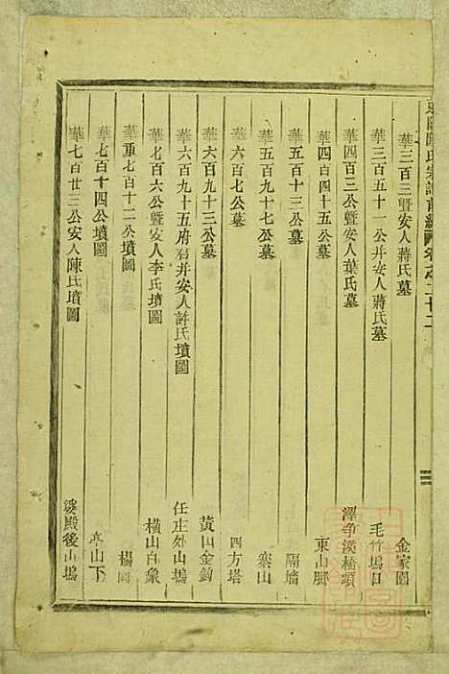 華三百三暨安人蔣氏墓 金家園
華三百五十一公并安人蔣氏墓 毛竹塢口
華四百三公暨安人葉氏墓 溪橋頭
華四百四十五公墓 東山脚
華五百十三公墓 隔墻
華五百九十七公墓 寨山
華六百七公墓 四方塔
華六百九十三公墓 黃田金鈎
華六百九十五府君并安人許氏墳圖 任庄外山塢
華七百六公暨安人李氏墳圖 橫山白象
華重七百十二公墳圖 楊
華七百十四公墳圖 山下
華七百廿三公安人陳氏墳圖 殿後山塢